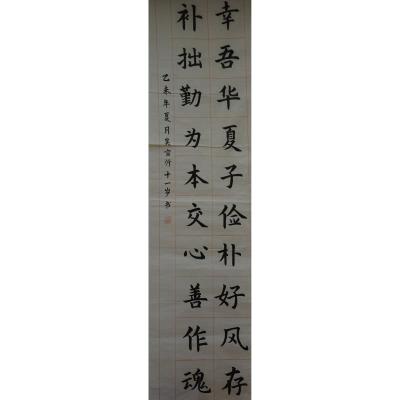 幸吾华夏子俭朴好风存
补拙勤为本交心善作魂
乙未年夏月吴言忻十一岁书